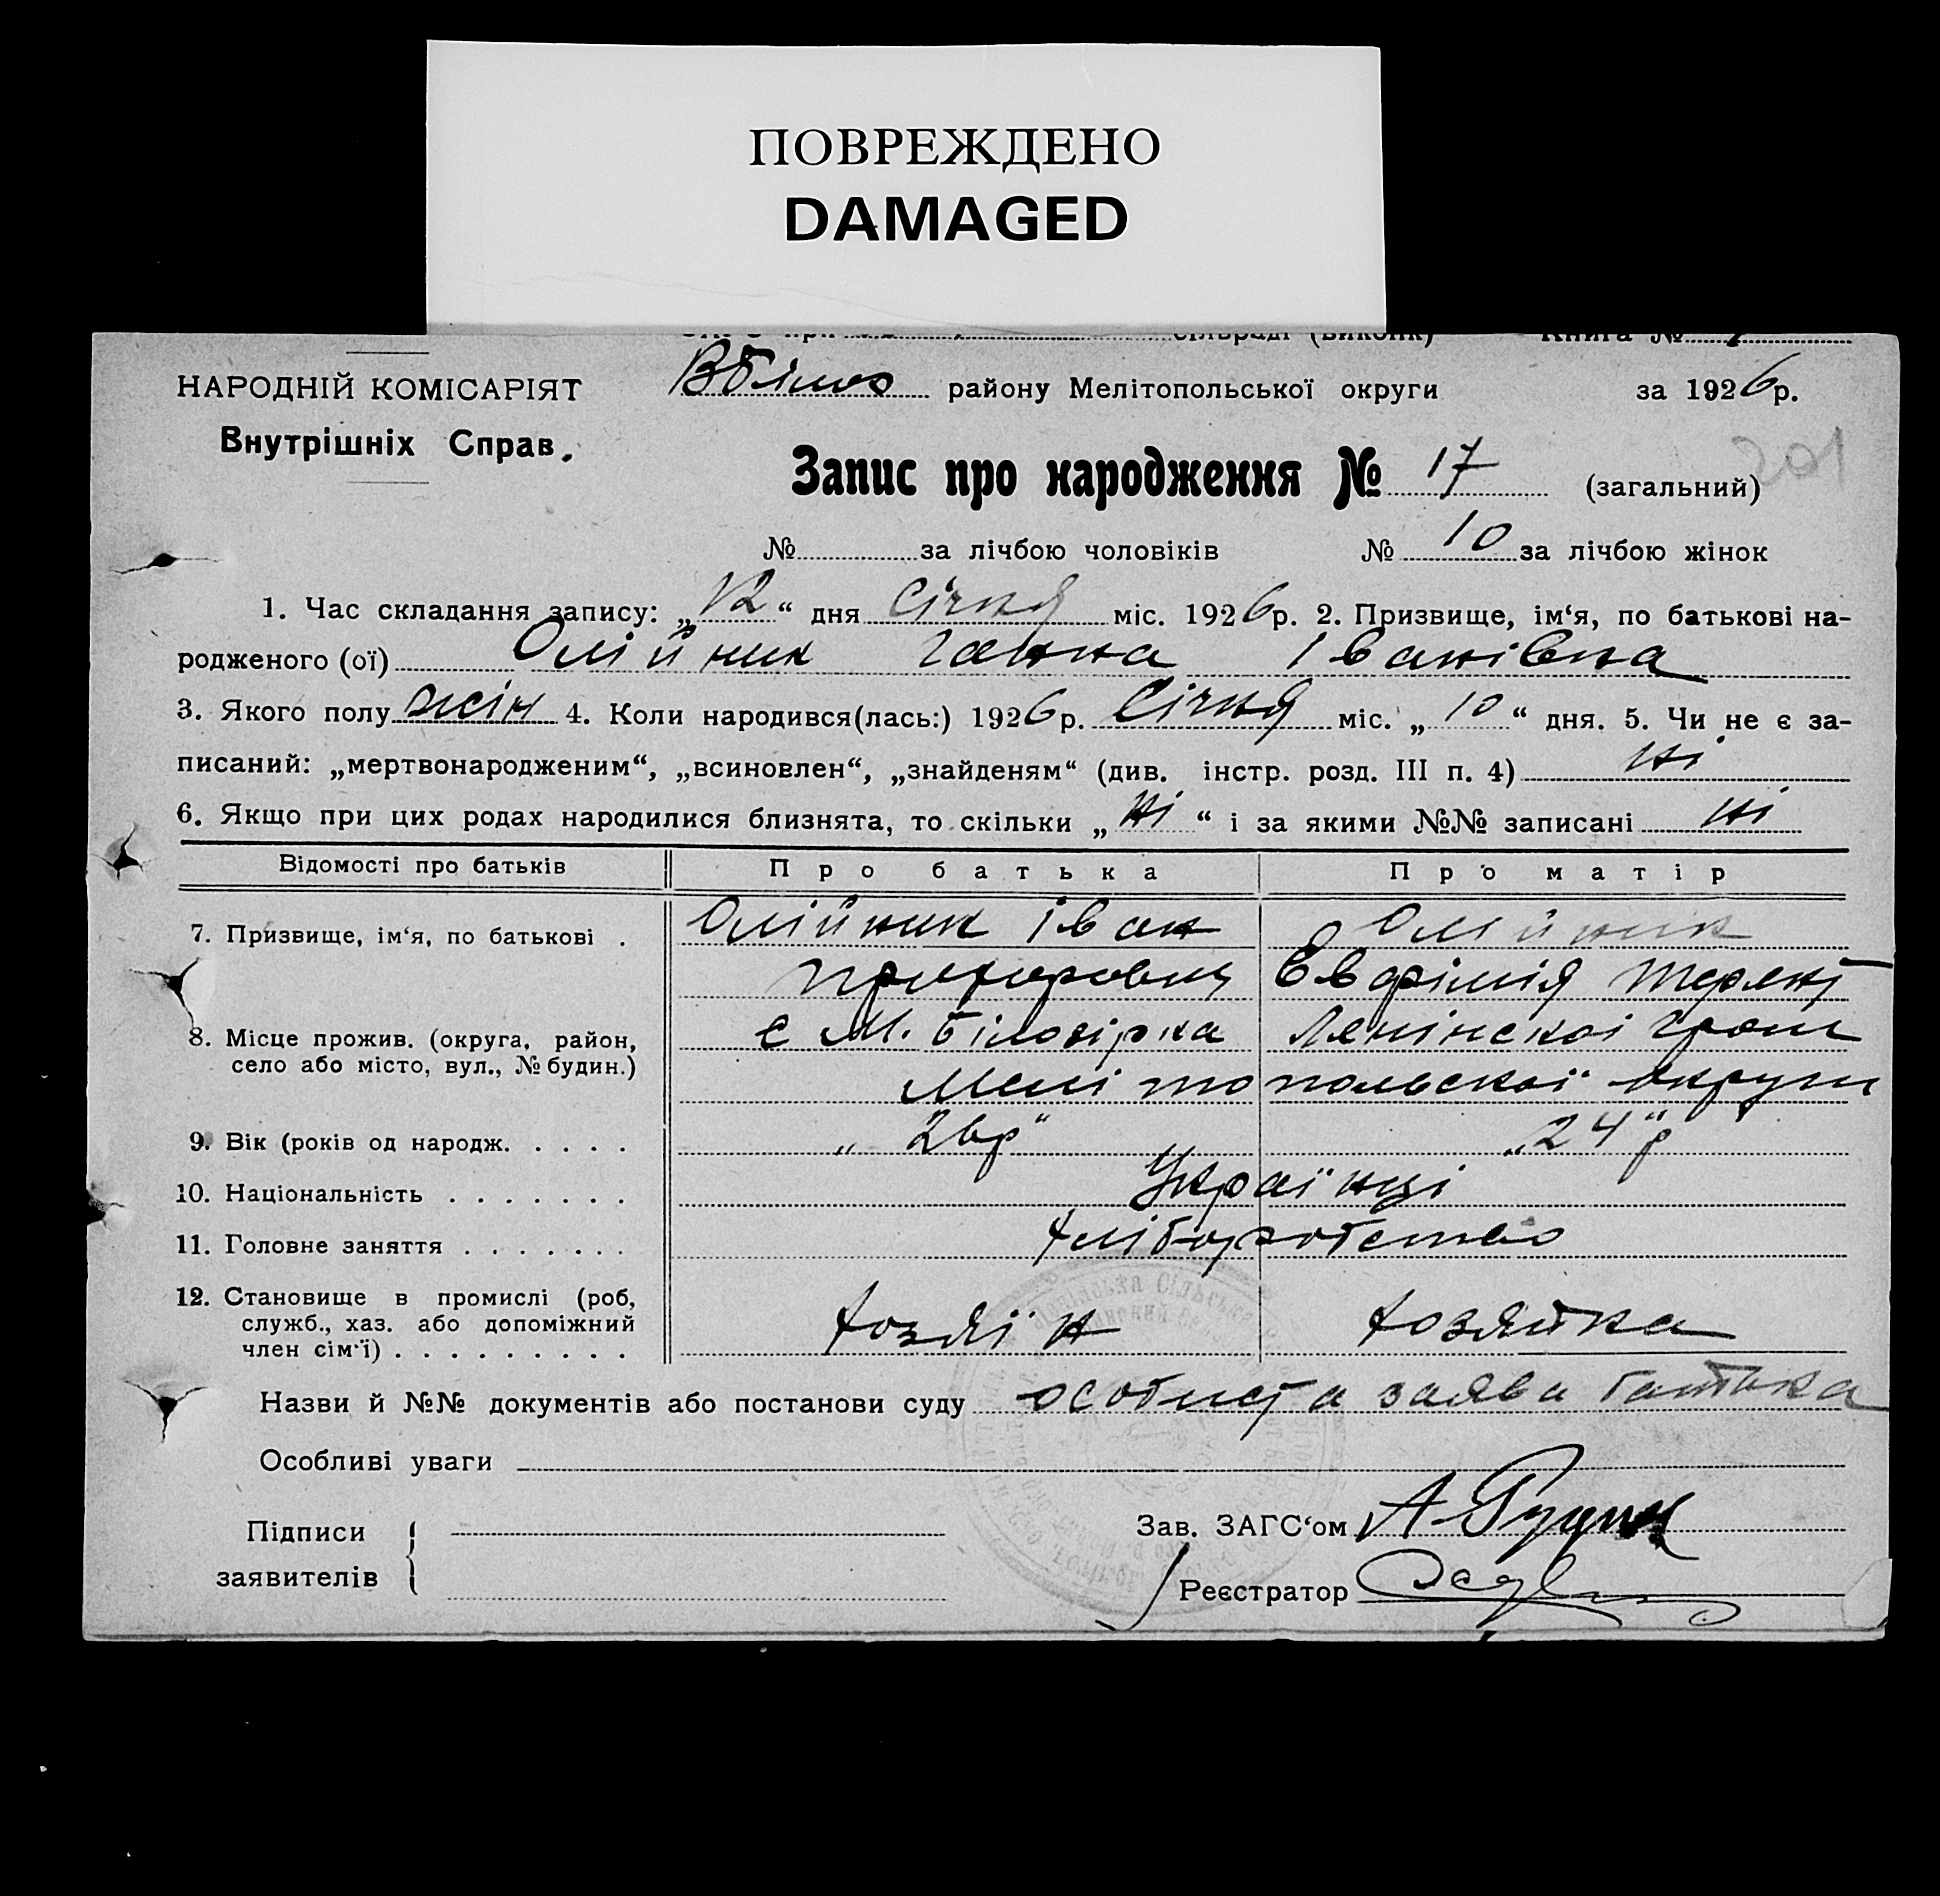 ПОВРЕЖДЕНО
DAMAGED
сільраді (виконк) Книга №
НАРОДНІЙ КОМІСАРІЯТ
Внутрішніх Справ.
Вбілоз району Мелітопольської округи за 1926р.
Запис про народження № 17 (загальний)
№ за лічбою чоловіків № 10 за лічбою жінок
1. Час складання запису: „12“ дня Січня міс. 1926р. 2. Призвище, ім‘я, по батькові на-
родженого (ої) Олійник Ганна Іванівна
3. Якого полу жін 4. Коли народився(лась:) 1926р. Січня міс. „10“ дня. 5. Чи не є за-
писаний: „мертвонародженим“, „всиновлен“, „знайденям“ (див. інстр. розд. III п. 4) ні
6. Якщо при цих родах народилися близнята, то скільки „ні“ і за якими №№ записані ні
Відомості про батьків Про батька Про матір
7. Призвище, ім‘я, по батькові . Олійник Іван Олійник
Прохорович Евфімія Терент
8. Місце прожив. (округа, район, с М. Білозірка Ленінскоі гром
село або місто, вул., № будин.) Мелітопольскоі округи
9. Вік (років од народж. . . . . . „26р“ „24“р
10. Національність . . . . . . . Українці
11. Головне заняття . . . . . . . хліборобство
12. Становище в промислі (роб,
служб., хаз. або допоміжний хозяїн хозяйка
член сім‘ї) . . . . . . . . .
Назви й №№ документів або постанови суду особиста заява батька
Особливі уваги
Підписи Зав. ЗАГС‘ом
заявителів Реєстратор